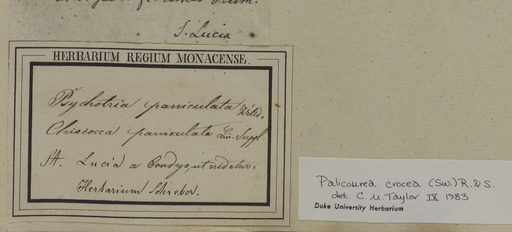 S. Lucia
HERBARIUM REGIUM MONACENSE.
Psychotria paniculata Willd.
Chiococca paniculata Lin. Suppl.
St. Lucia a Bondyo, ut videtur.
Herbarium Schreber.
Palicourea crocea (Sw.) R. & S.
det. C. M. Taylor IX 1983
Duke University Herbarium